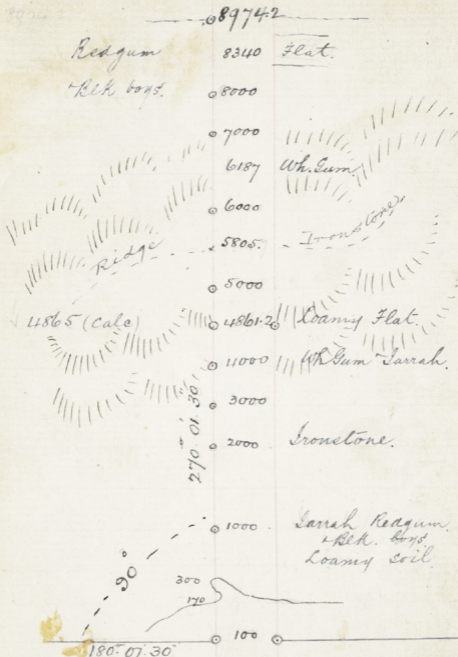 89742
Redgum 8340 Flat.
& Blk boys. 8000
7000
6187 Wh. Gum
6000
Ridge 5805. Ironstone
5000
4865 (Calc) 4861.2 Loamy Flat.
4000 Wh Gum Jarrah.
3000
270° 01' 30"
2000 Ironstone.
1000 Jarrah Redgum
& Blk. boys
Loamy soil
90°
300
170
100
180° 01' 30"